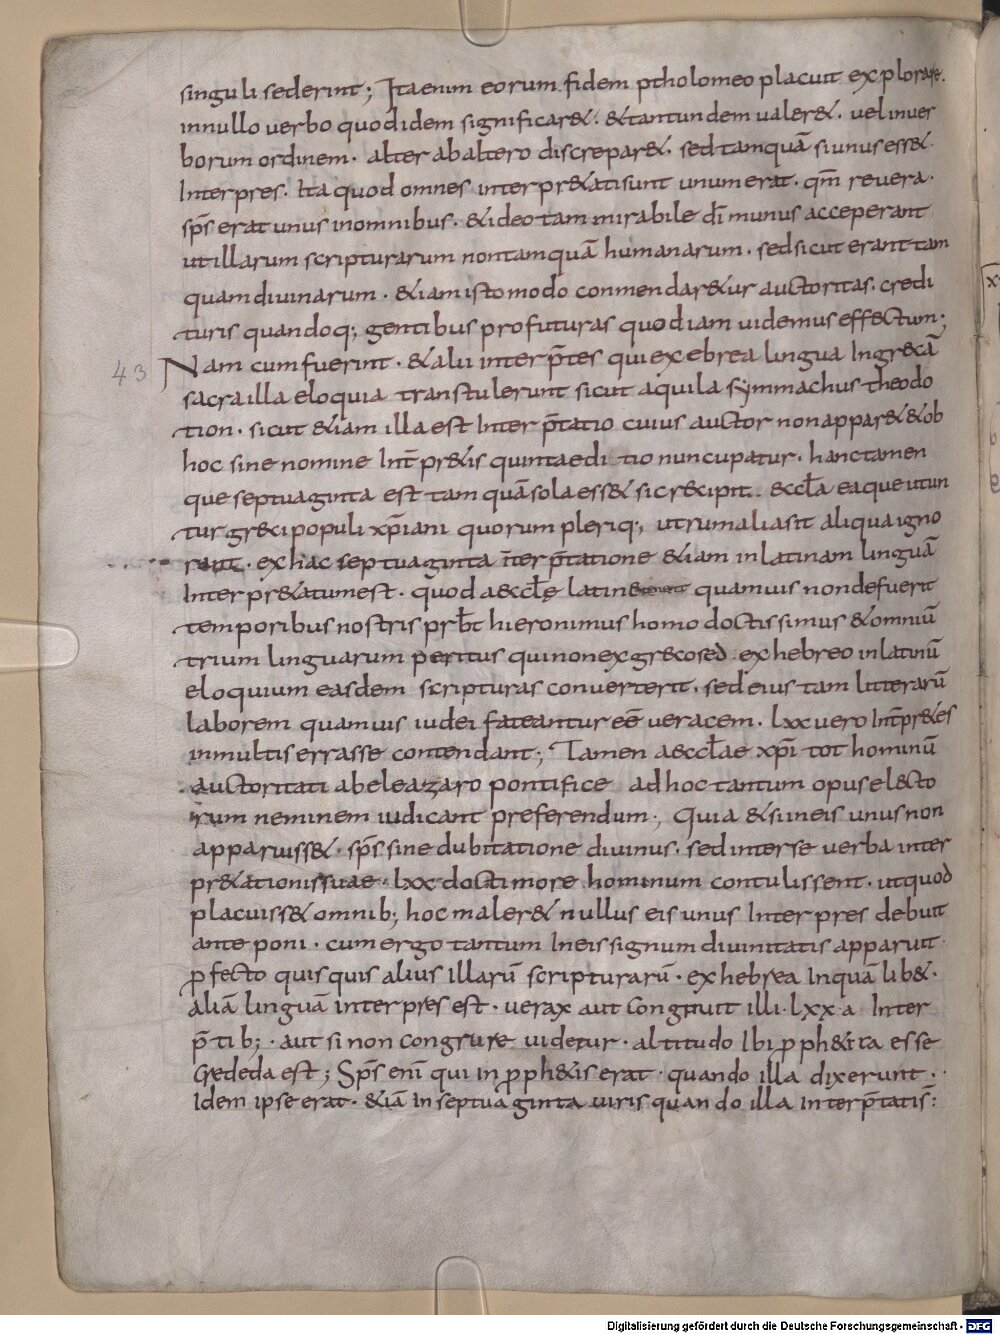 singuli sederint; Itaenim eorum fidem ptholomeo placuit explorare.
innullo uerbo quodidem significar&. &tantundem ualer&. uelinuer
borum ordinem. alter abaltero discrepar&. sedtamquā siunusess&.
Interpres. Ita quod omnes interpr&atisunt unumerat. qm̄ reuera.
sp̄s erat unus inomnibus. &ideo tam mirabile dī munus acceperant
utillarum scripturarum nontamquā humanarum. sedsicut erant tam
quamdiuinarum. &iamistomodo conmendar&ur auctoritas. credi
turis quandoq; gentibus profuturas quod iam uidemus effectum;
43 Nam cumfuerint. &alii interp̄tes qui ex ebrea lingua Ingr&cā
sacra illa eloquia transtulerunt sicut aquila symmachus theodo
tion. sicut &iam illa est Interp̄tatio cuius auctor nonappar& &ob
hoc sine nomine Int̄pr&is quintaedi tio nuncupatur. hanc tamen
que septuaginta est tam quā sola ess& sic r&cipit. &ccl̄a eaque utun
tur gr&ci populi xp̄iani quorum pleriq; utrum alia sit aliqua igno
rant. exhac septuaginta īterp̄tatione &iam inlatinam linguā
Interpr&atumest. quod a&ccl̄ę latin& quamuis nondefuerit
temporibus nostris prb̄t hieronimus homo doctissimus &omniū
trium linguarum peritus quinonexgr&cosed exhebreo inlatinū
eloquium easdem scripturas conuerterit. sed eius tam litterarū
laborem quamuis iudei fateantur eē ueracem. lxx uero Int̄pr&es
inmultis errasse contendant; Tamen a&ccl̄ae xp̄i tot hominū
auctoritati abeleazaro pontifice adhoc tantum opus el&cto
rum neminem iudicant preferendum; Quia &siineis unus non
apparuiss&. sp̄s sine dubitatione diuinus. sed interse uerba inter
pr&ationissuae. lxx docti more hominum contulissent. utquod
placuiss& omnib; hoc maler& nullus eis unus Interpres debuit
anteponi. cum ergo tantum Ineis signum diuinitatis apparuit.
p̱fecto quisquis alius illarū scripturarū. ex hebrea Inquā lib&.
aliā linguā interpres est. uerax aut congruit illi. lxx.a Inter
p̄tib;. aut si non congruere uidetur. altitudo Ibi p̱ph&i ta esse
Crededa est; Sp̄s enī qui in p̱ph&is erat. quando illa dixerunt.
Idem ipse erat. &iā In septuaginta uiris quando illa interp̄tatis̄:
Digitalisierung gefördert durch die Deutsche Forschungsgemeinschaft - DFG